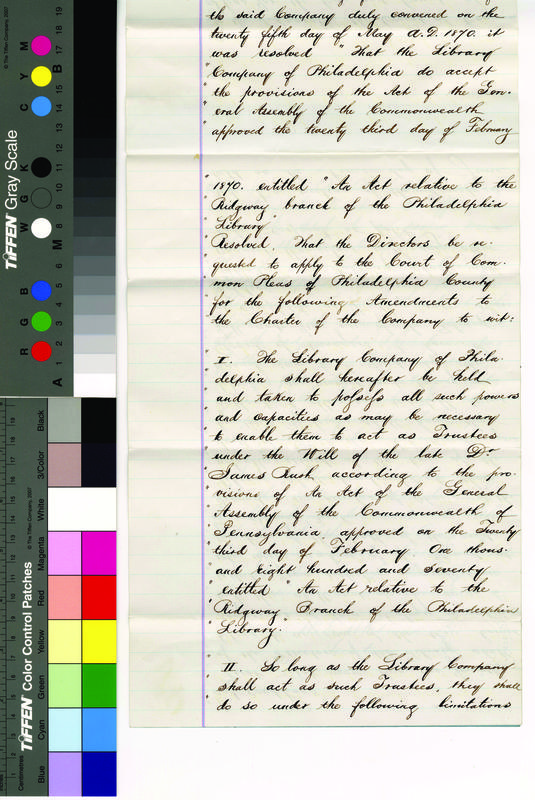 the said Company duly convened on the
twenty fifth day of May A.D. 1870. it
was resolved "That the Library
" Company of Philadelphia do accept
" the provisions of the Act of the Gen-
" eral Assembly of the Commonwealth
" approved the twenty third day of February
" 1870. entitled "An Act relative to the
" Ridgway branch of the Philadelphia
" Library"
" Resolved, That the Directors be re-
" quested to apply to the Court of Com-
" mon Pleas of Philadelphia County
" for the following Amendments to
" the Charter of the Company to wit:
" I. The Library Company of Phila-
" delphia shall hereafter be held
" and taken to possess all such powers
" and capacities as may be necessary
" to enable them to act as Trustees
" under the Will of the late Dr
" James Rush, according to the pro-
" visions of An Act of the General
" Assembly of the Commonwealth of
" Pennsylvania, approved on the Twenty
" third day of February, One thous-
" and Eight Hundred and Seventy
" entitled "An Act relative to the
" Ridgway Branch of the Philadelphia
" Library."
" II. So long as the Library Company
" shall act as such Trustees, they shall
" do so under the following limitations
© The Tiffen Company, 2007
TIFFEN Gray Scale
R G B W G K C Y M
A 1 2 3 4 5 6 M 8 9 10 11 12 13 14 15 B 17 18 19
TIFFEN Color Control Patches
© The Tiffen Company, 2007
Centimetres
Blue Cyan Green Yellow Red Magenta White 3/Color Black